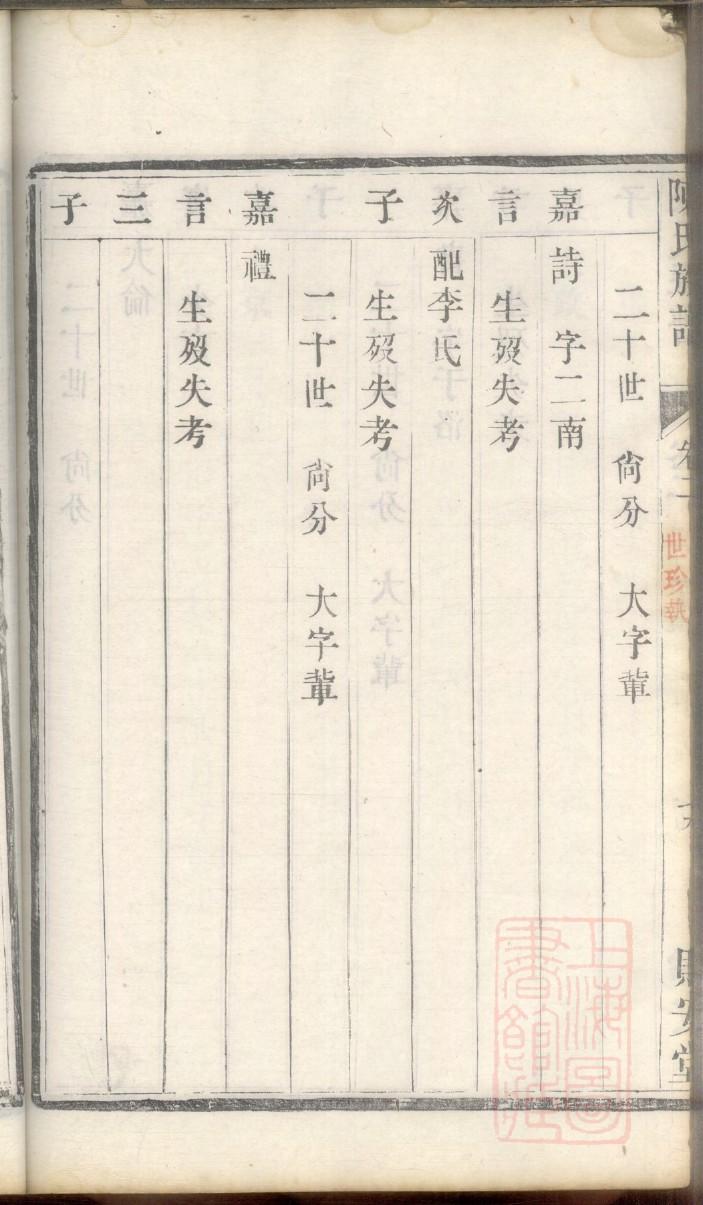 陳氏族譜 卷二
世珍執
二十世 尙分 大字輩
嘉詩 字二南
言 生殁失考
次 配李氏
子 生殁失考
二十世 尙分 大字輩
嘉禮
言 生殁失考
三
子
上海圖
書館藏